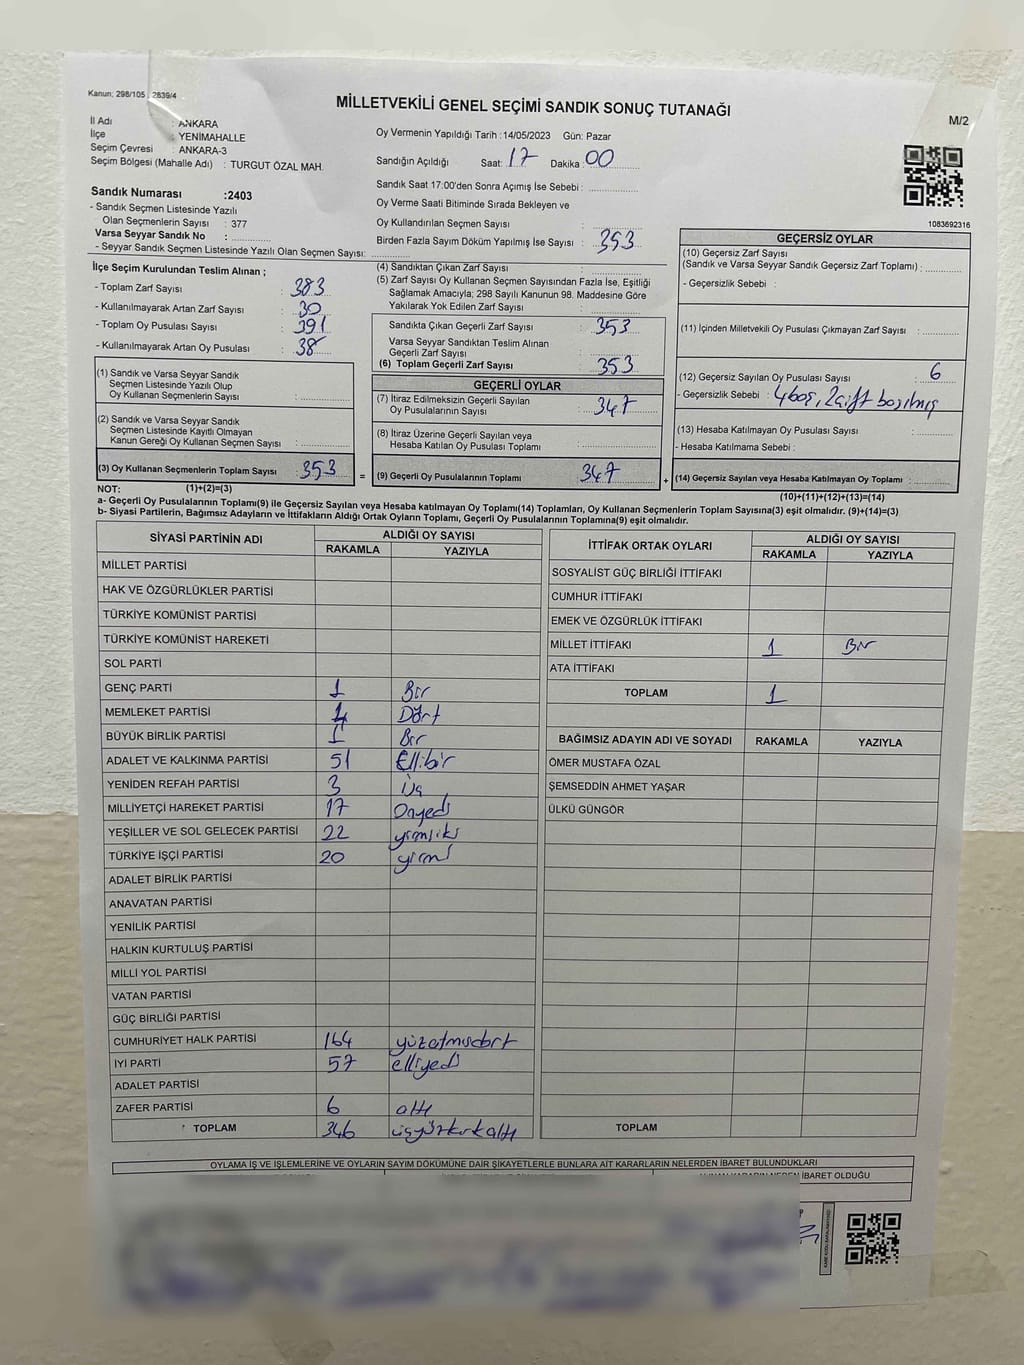 Kanun; 298/105 , 2839/4
MİLLETVEKİLİ GENEL SEÇİMİ SANDIK SONUÇ TUTANAĞI
M/2
İl Adı : ANKARA
İlçe : YENİMAHALLE
Seçim Çevresi : ANKARA-3
Seçim Bölgesi (Mahalle Adı) : TURGUT ÖZAL MAH.
Oy Vermenin Yapıldığı Tarih : 14/05/2023 Gün: Pazar
Sandığın Açıldığı Saat: 17 Dakika : 00
Sandık Saat 17:00'den Sonra Açımış İse Sebebi :
Oy Verme Saati Bitiminde Sırada Bekleyen ve
Oy Kullandırılan Seçmen Sayısı :
Birden Fazla Sayım Döküm Yapılmış İse Sayısı : 353
Sandık Numarası :2403
- Sandık Seçmen Listesinde Yazılı
Olan Seçmenlerin Sayısı : 377
Varsa Seyyar Sandık No :
- Seyyar Sandık Seçmen Listesinde Yazılı Olan Seçmen Sayısı:
1083692316
İlçe Seçim Kurulundan Teslim Alınan ;
- Toplam Zarf Sayısı : 383
- Kullanılmayarak Artan Zarf Sayısı : 30
- Toplam Oy Pusulası Sayısı : 391
- Kullanılmayarak Artan Oy Pusulası : 38
(1) Sandık ve Varsa Seyyar Sandık
Seçmen Listesinde Yazılı Olup
Oy Kullanan Seçmenlerin Sayısı :
(2) Sandık ve Varsa Seyyar Sandık
Seçmen Listesinde Kayıtlı Olmayan
Kanun Gereği Oy Kullanan Seçmen Sayısı :
(3) Oy Kullanan Seçmenlerin Toplam Sayısı : 353
=
(4) Sandıktan Çıkan Zarf Sayısı :
(5) Zarf Sayısı Oy Kullanan Seçmen Sayısından Fazla İse, Eşitliği
Sağlamak Amacıyla; 298 Sayılı Kanunun 98. Maddesine Göre
Yakılarak Yok Edilen Zarf Sayısı :
Sandıkta Çıkan Geçerli Zarf Sayısı : 353
Varsa Seyyar Sandıktan Teslim Alınan
Geçerli Zarf Sayısı :
(6) Toplam Geçerli Zarf Sayısı : 353
GEÇERLİ OYLAR
(7) İtiraz Edilmeksizin Geçerli Sayılan
Oy Pusulalarının Sayısı : 347
(8) İtiraz Üzerine Geçerli Sayılan veya
Hesaba Katılan Oy Pusulası Toplamı :
(9) Geçerli Oy Pusulalarının Toplamı : 347
+
GEÇERSİZ OYLAR
(10) Geçersiz Zarf Sayısı
(Sandık ve Varsa Seyyar Sandık Geçersiz Zarf Toplamı) :
- Geçersizlik Sebebi :
(11) İçinden Milletvekili Oy Pusulası Çıkmayan Zarf Sayısı :
(12) Geçersiz Sayılan Oy Pusulası Sayısı : 6
- Geçersizlik Sebebi : 4 boş, 2 çift basılmış
(13) Hesaba Katılmayan Oy Pusulası Sayısı :
- Hesaba Katılmama Sebebi :
(14) Geçersiz Sayılan veya Hesaba Katılmayan Oy Toplamı :
NOT: (1)+(2)=(3)
(10)+(11)+(12)+(13)=(14)
a- Geçerli Oy Pusulalarının Toplamı(9) ile Geçersiz Sayılan veya Hesaba katılmayan Oy Toplamı(14) Toplamları, Oy Kullanan Seçmenlerin Toplam Sayısına(3) eşit olmalıdır. (9)+(14)=(3)
b- Siyasi Partilerin, Bağımsız Adayların ve İttifakların Aldığı Ortak Oyların Toplamı, Geçerli Oy Pusulalarının Toplamına(9) eşit olmalıdır.
SİYASİ PARTİNİN ADI ALDIĞI OY SAYISI
RAKAMLA YAZIYLA
MİLLET PARTİSİ
HAK VE ÖZGÜRLÜKLER PARTİSİ
TÜRKİYE KOMÜNİST PARTİSİ
TÜRKİYE KOMÜNİST HAREKETİ
SOL PARTİ
GENÇ PARTİ 1 Bir
MEMLEKET PARTİSİ 4 Dört
BÜYÜK BİRLİK PARTİSİ 1 Bir
ADALET VE KALKINMA PARTİSİ 51 Ellibir
YENİDEN REFAH PARTİSİ 3 Üç
MİLLİYETÇİ HAREKET PARTİSİ 17 Onyedi
YEŞİLLER VE SOL GELECEK PARTİSİ 22 yirmiiki
TÜRKİYE İŞÇİ PARTİSİ 20 yirmi
ADALET BİRLİK PARTİSİ
ANAVATAN PARTİSİ
YENİLİK PARTİSİ
HALKIN KURTULUŞ PARTİSİ
MİLLİ YOL PARTİSİ
VATAN PARTİSİ
GÜÇ BİRLİĞİ PARTİSİ
CUMHURİYET HALK PARTİSİ 164 yüzatmışdört
İYİ PARTİ 57 elliyedi
ADALET PARTİSİ
ZAFER PARTİSİ 6 altı
TOPLAM 346 üçyüzkırkaltı
İTTİFAK ORTAK OYLARI ALDIĞI OY SAYISI
RAKAMLA YAZIYLA
SOSYALİST GÜÇ BİRLİĞİ İTTİFAKI
CUMHUR İTTİFAKI
EMEK VE ÖZGÜRLÜK İTTİFAKI
MİLLET İTTİFAKI 1 Bir
ATA İTTİFAKI
TOPLAM 1
BAĞIMSIZ ADAYIN ADI VE SOYADI RAKAMLA YAZIYLA
ÖMER MUSTAFA ÖZAL
ŞEMSEDDİN AHMET YAŞAR
ÜLKÜ GÜNGÖR
TOPLAM
OYLAMA İŞ VE İŞLEMLERİNE VE OYLARIN SAYIM DÖKÜMÜNE DAİR ŞİKAYETLERLE BUNLARA AİT KARARLARIN NELERDEN İBARET BULUNDUKLARI
İBARET OLDUĞU